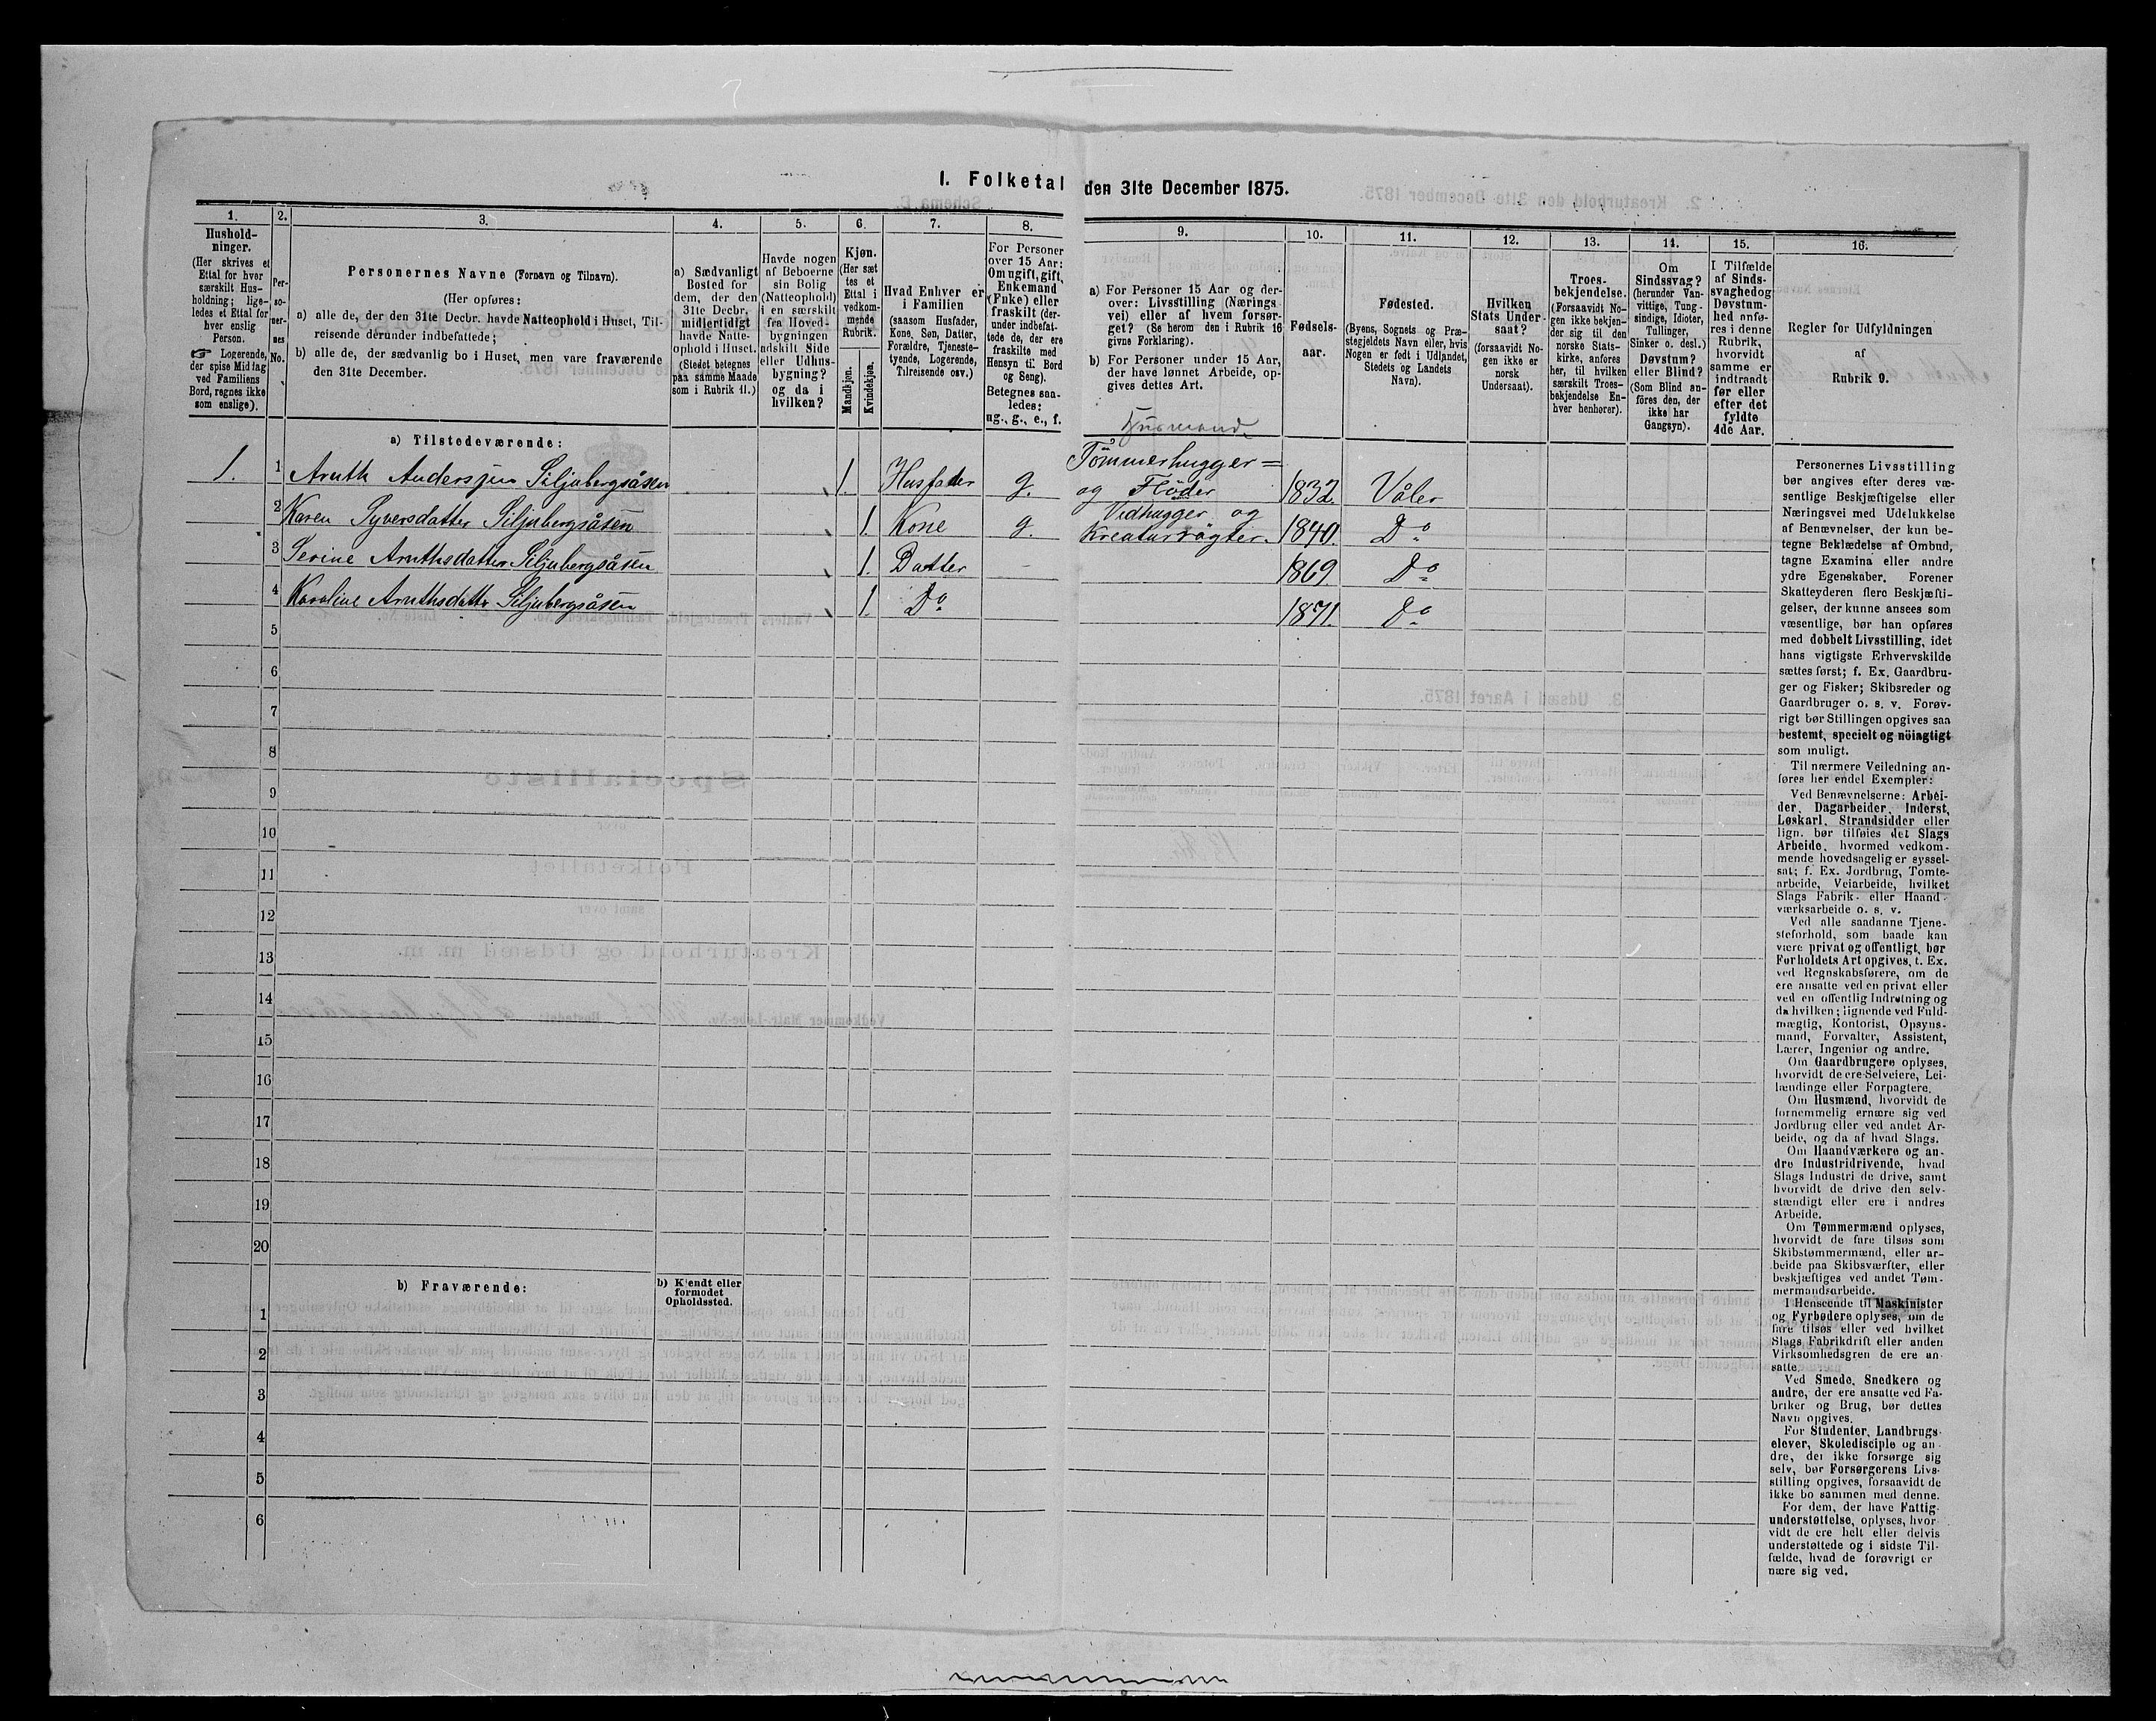 I. Folketal den 31te December 1875.
1.
Hushold-
ninger.
(Her skrives et
Ettal for hver
særskilt Hus-
holdning; lige-
ledes et Ettal for
hver enslig
Person.
☞ Logerende,
der spise Middag
ved Familiens
Bord, regnes ikke
som enslige).
2.
Per-
so-
ner-
nes
No.
3.
Personernes Navne (Fornavn og Tilnavn).
(Her opføres:
a) alle de, der den 31te Decbr. havde Natteophold i Huset, Til-
reisende derunder indbefattede;
b) alle de, der sædvanlig bo i Huset, men vare fraværende
den 31te December.
4.
a) Sædvanligt
Bosted for
dem, der den
31te Decbr.
midlertidigt
havde Natte-
ophold i Huset.
(Stedet betegnes
paa samme Maade
som i Rubrik 11.)
5.
Havde nogen
af Beboerne
sin Bolig
(Natteophold)
i en særskilt
fra Hoved-
bygningen
adskilt Side
eller Udhus-
bygning?
og da i
hvilken?
6.
Kjøn.
(Her sæt
tes et
Ettal i
vedkom-
mende
Rubrik.
Mandkjøn.
Kvindekjøn.
7.
Hvad Enhver er
i Familien
(saasom Husfader,
Kone, Søn, Datter,
Forældre, Tjeneste-
tyende, Logerende,
Tilreisende osv.)
8.
For Personer
over 15 Aar:
Om ugift, gift,
Enkemand
(Enke) eller
fraskilt (der-
under indbefat-
tede de, der ere
fraskilte med
Hensyn til Bord
og Seng).
Betegnes saa-
ledes:
ug., g., e., f.
9.
a) For Personer 15 Aar og der-
over: Livsstilling (Nærings
vei) eller af hvem forsør-
get? (Se herom den i Rubrik 16
givne Forklaring).
b) For Personer under 15 Aar,
der have lønnet Arbeide, op-
gives dettes Art.
10.
Fødsels-
aar.
11.
Fødested.
(Byens, Sognets og Præ-
stegjeldets Navn eller, hvis
Nogen er født i Udlandet,
Stedets og Landets
Navn).
12.
Hvilken
Stats Under-
saat?
(forsaavidt No-
gen ikke er
norsk
Undersaat).
13.
Troes-
bekjendelse.
(Forsaavidt No-
gen ikke bekjen-
der sig til den
norske Stats-
kirke, anføres
her, til hvilken
særskilt Troes-
bekjendelse En-
hver henhører).
14.
Om
Sindssvag?
(herunder Van-
vittige, Tung-
sindige, Idioter,
Tullinger,
Sinker o. desl.)
Døvstum?
eller Blind?
(Som Blind an-
føres den, der
ikke har
Gangsyn).
15.
I Tilfælde
af Sinds-
svaghed og
Døvstum-
hed anfø-
res i denne
Rubrik,
hvorvidt
samme er
indtraadt
før eller
efter det
fyldte
4de Aar.
16.
Regler for Udfyldningen
af
Rubrik 9.
a) Tilstedeværende:
Husmand
Tömmerhugger =
1. 1 Aruth Andersen Siljubergsåsen 1. Husfader g. og Flöder 1832. Våler
Vedhugger og
2 Karen Syversdatter Siljubergsåsen 1. Kone g. Kreaturrögter. 1840. Do
3 Serine Aruthsdatter Siljubergsåsen 1. Datter 1869. Do
4 Karoline Aruthsdattr Siljubergsåsen 1. Do 1871. Do
5
6
7
8
9
10
11
12
13
14
15
16
17
18
19
20
b) Fraværende:
b) Kjendt eller
formodet
Opholdssted.
1
2
3
4
5
6
Personernes Livsstilling
bør angives efter deres væ-
sentlige Beskjæftigelse eller
Næringsvei med Udelukkelse
af Benævnelser, der kun be-
tegne Beklædelse af Ombud,
tagne Examina eller andre
ydre Egenskaber. Forener
Skatteyderen flere Beskjæfti-
gelser, der kunne ansees som
væsentlige, bør han opføres
med dobbelt Livsstilling, idet
hans vigtigste Erhvervskilde
sættes først; f. Ex. Gaardbru-
ger og Fisker; Skibsreder og
Gaardbruger o. s. v. Forøv-
rigt bør Stillingen opgives saa
bestemt, specielt og nöiagtigt
som muligt.
Til nærmere Veiledning an-
føres her endel Exempler:
Ved Benævnelserne: Arbei-
der, Dagarbeider, Inderst,
Løskarl, Strandsidder eller
lign. bør tilføies det Slags
Arbeide, hvormed vedkom-
mende hovedsagelig er syssel-
sat; f. Ex. Jordbrug, Tomte-
arbeide, Veiarbeide, hvilket
Slags Fabrik- eller Haand-
værksarbeide o. s. v.
Ved alle saadanne Tjene-
steforhold, som baade kan
være privat og offentligt, bør
Forholdets Art opgives, f. Ex.
ved Regnskabsførere, om de
ere ansatte ved en privat eller
ved en offentlig Indretning og
da hvilken; lignende ved Fuld-
mægtig, Kontorist, Opsyns-
mand, Forvalter, Assistent,
Lærer, Ingeniør og andre.
Om Gaardbrugere oplyses,
hvorvidt de ere Selveiere, Lei-
lændinge eller Forpagtere.
Om Husmænd, hvorvidt de
fornemmelig ernære sig ved
Jordbrug eller ved andet Ar-
beide, og da af hvad Slags.
Om Haandværkere og an-
dre Industridrivende, hvad
Slags Industri de drive, samt
hvorvidt de drive den selv-
stændigt eller ere i andres
Arbeide.
Om Tømmermænd oplyses,
hvorvidt de fare tilsøs som
Skibstømmermænd, eller ar-
beide paa Skibsværfter, eller
beskjæftiges ved andet Tøm-
mermandsarbeide.
I Henseende til Maskinister
og Fyrbødere oplyses, om de
fare tilsøs eller ved hvilket
Slags Fabrikdrift eller anden
Virksomhedsgren de ere an-
satte.
Ved Smede, Snedkere og
andre, der ere ansatte ved Fa-
briker og Brug, bør dettes
Navn opgives.
For Studenter, Landbrugs-
elever, Skoledisciple og an-
dre, der ikke forsørge sig
selv, bør Forsørgerens Livs-
stilling opgives, forsaavidt de
ikke bo sammen med denne.
For dem, der have Fattig-
understøttelse, oplyses, hvor-
vidt de ere helt eller delvis
understøttede og i sidste Til-
fælde, hvad de forøvrigt er
nære sig ved.